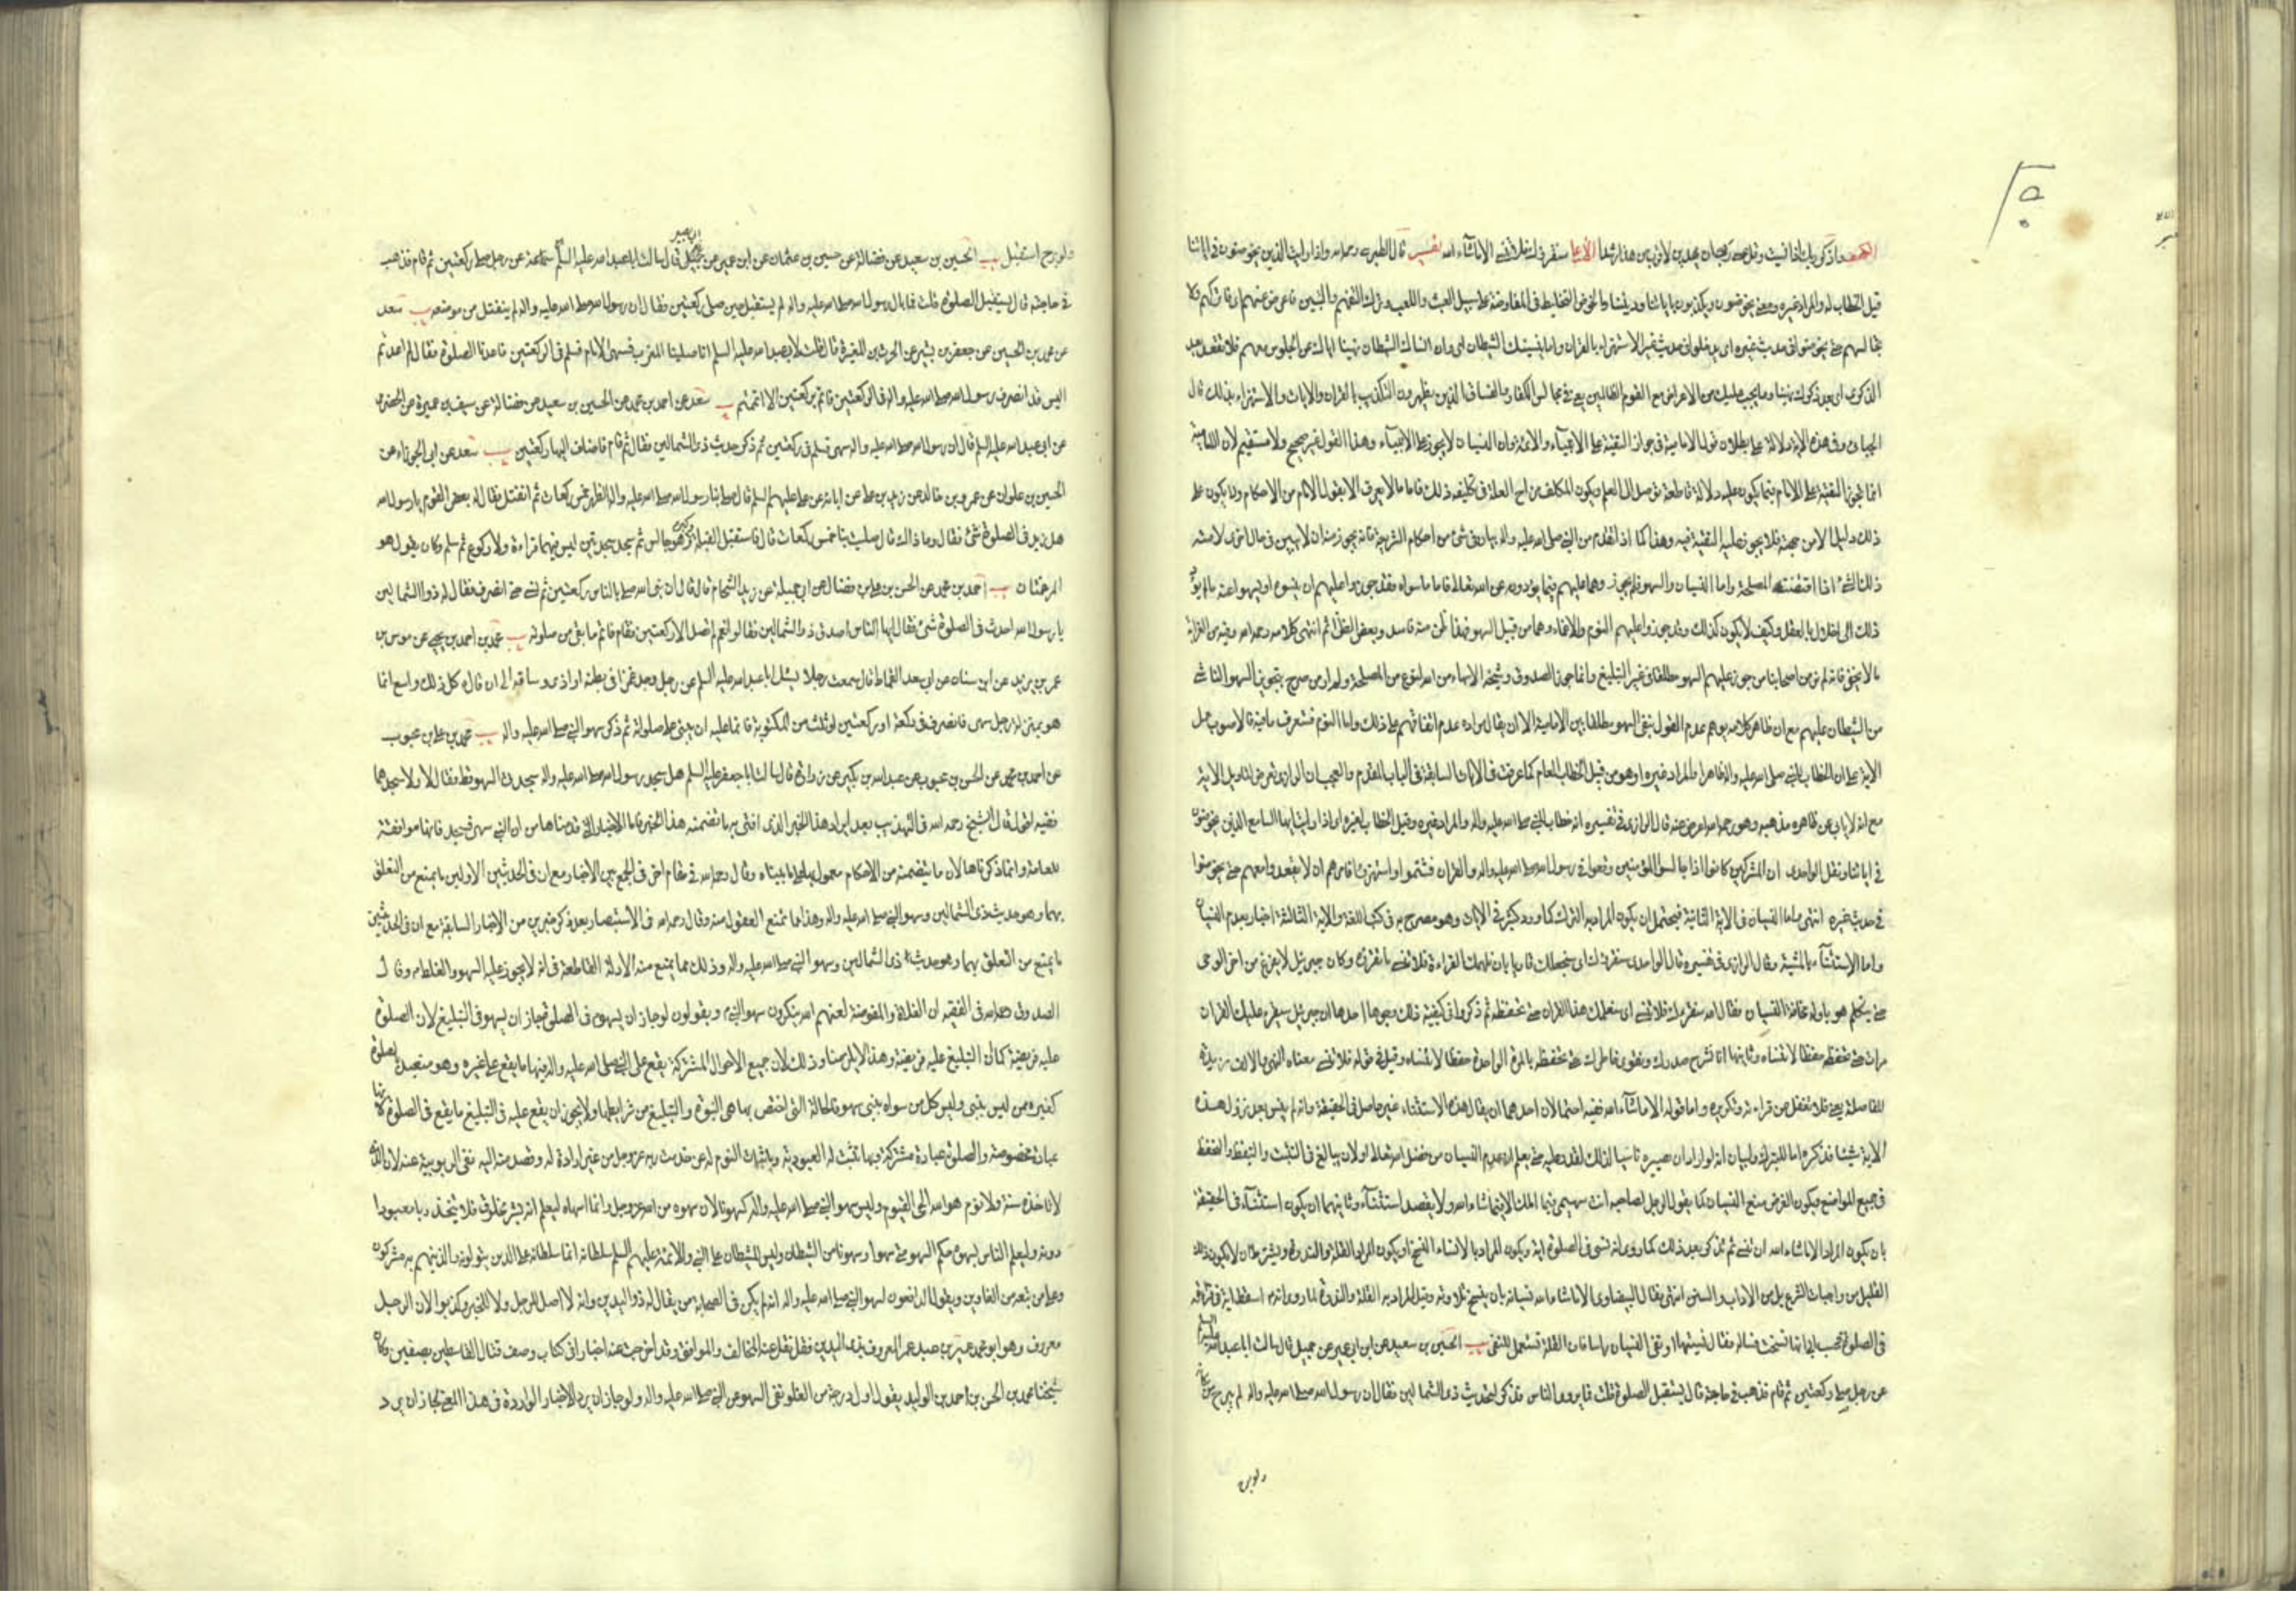 الكهف واذكر ربك اذا نسيت وقل عسى ان يهدين ربي لاقرب من هذا رشدا الأعلى سنقرئك فلا تنسى الا ما شاء الله تفسير قال الطبرسي رحمه الله واذا رايت الذين يخوضون في اياتنا
قيل الخطاب له والمراد غيره ومعنى يخوضون يكذبون باياتنا وديننا والخوض التخليط في المفاوضة على سبيل العبث واللعب وترك التفهم والتبيين فاعرض عنهم اي فاتركهم ولا
تجالسهم حتى يخوضوا في حديث غيره اي يدخلوا في حديث غير الاستهزاء بالقران واما ينسينك الشيطان اي وان انساك الشيطان نهينا اياك عن الجلوس معهم فلا تقعد بعد
الذكرى اي بعد ذكرك نهينا وما يجب عليك من الاعراض مع القوم الظالمين يعني في مجالس الكفار والفساق الذين يظهرون التكذيب بالقران والايات والاستهزاء بذلك قال
الجبائي وفي هذه الاية دلالة على بطلان قول الامامية في جواز التقية على الانبياء والائمة وان النسيان لا يجوز على الانبياء وهذا القول غير صحيح ولا مستقيم لان الامامية
انما تجوز التقية على الامام فيما يكون عليه دلالة قاطعة توصل الى العلم ويكون المكلف مزاح العلة في تكليفه ذلك فاما ما لا يعرف الا بقول الامام من الاحكام ولا يكون على
ذلك دليل الا من جهته فلا يجوز عليه التقية فيه وهذا كما اذا تقدم من النبي صلى الله عليه واله بيان في شئ من احكام الشريعة فانه يجوز منه ان لا يبين في حال اخرى لامته
ذلك الشئ اذا اقتضته المصلحة واما النسيان والسهو فلم يجوزوهما عليهم فيما يؤدونه عن الله تعالى فاما ما سواه فقد جوزوا عليهم ان ينسوه او يسهوا عنه ما لم يؤد
ذلك الى اخلال بالعقل وكيف لا يكون كذلك وقد جوزوا عليهم النوم والاغماء وهما من قبيل السهو فهذا ظن منه فاسد وبعض الظن اثم انتهى كلامه رحمه الله وفيه من الغرابة
ما لا يخفى فانه لم نر من اصحابنا من جوز عليهم السهو مطلقا في غير التبليغ وانما جوز الصدوق وشيخه الاسهاء من الله لنوع من المصلحة ولم ار من صرح بتجويز السهو الناشئ
من الشيطان عليهم مع ان ظاهر كلامه يوهم عدم القول بنفي السهو مطلقا بين الامامية الا ان يقال مراده عدم اتفاقهم على ذلك واما النوم فستعرف ما فيه فالاصوب حمل
الاية على ان الخطاب للنبي صلى الله عليه واله ظاهرا والمراد غيره او هو من قبيل الخطاب العام كما عرفت في الايات السابقة في الباب المقدم والعجب ان الرازي تعرض لتاويل الاية
مع انه لا ياباه ظاهره مذهبه وهو رحمه الله اعرض عنه قال الرازي في تفسيره انه خطاب للنبي صلى الله عليه واله والمراد غيره وقيل الخطاب لغيره اي اذا رايت ايها السامع الذين يخوضون
في اياتنا ونقل الواحدي ان المشركين كانوا اذا جالسوا المؤمنين وقعوا في رسول الله صلى الله عليه واله والقران فشتموا واستهزؤا فامرهم ان لا يقعدوا معهم حتى يخوضوا
في حديث غيره انتهى واما النسيان في الاية الثانية فيحتمل ان يكون المراد به الترك كما ورد كثيرا في الايات وهو مصرح به في كتب اللغة والاية الثالثة اخبار بعدم النسيان
واما الاستثناء بالمشية فقال الرازي في تفسيره قال الواحدي سنقرئك اي سنجعلك قاريا بان نلهمك القراءة فلا تنسى ما تقرؤه وكان جبرئيل لا يفرغ من اخر الوحي
حتى يتكلم هو باوله مخافة النسيان فقال الله سنقرئك فلا تنسى اي سنعلمك هذا القران حتى تحفظه ثم ذكروا في كيفية ذلك وجوها احدها ان جبرئيل سيقرأ عليك القران
مرات حتى تحفظه حفظا لا تنساه وثانيها انا نشرح صدرك ونقوي خاطرك حتى تحفظه بالمرة الواحدة حفظا لا تنساه وقيل في قوله فلا تنسى معناه النهي والالف مزيدة
للفاصلة يعني فلا تغفل عن قراءته وتكريره واما قوله الا ما شاء الله ففيه احتمالان احدهما ان يقال هذا الاستثناء غير حاصل في الحقيقة وانه لم ينس بعد نزول هذه
الاية شيئا فذكره اما للتبرك او لبيان انه لو اراد ان يصيره ناسيا لذلك لقدر عليه حتى يعلم ان عدم النسيان من فضل الله تعالى او لان يبالغ في التثبت والتيقظ والتحفظ
في جميع المواضع ويكون الغرض منع النسيان كما يقول الرجل لصاحبه انت سهيمي فيما املك الا فيما شاء الله ولا يقصد استثناء وثانيهما ان يكون استثناء في الحقيقة
بان يكون المراد الا ما شاء الله ان تنسى ثم تذكر بعد ذلك كما روي انه نسي في الصلوة اية ويكون المراد بالانساء النسخ او يكون المراد القلة والندرة ويشترط ان لا يكون ذلك
القليل من واجبات الشرع بل من الاداب والسنن انتهى وقال البيضاوي الا ما شاء الله نسيانه بان ينسخ تلاوته وقيل المراد به القلة والندرة لما روي انه اسقط اية في قراءته
في الصلوة فحسب ابي انها نسخت فساله فقال نسيتها او نفي النسيان راسا فان القلة تستعمل للنفي يب الحسين بن سعيد عن ابن ابي عمير عن جميل قال سالت ابا عبد الله عليه السلم
عن رجل صلى ركعتين ثم قام فذهب في حاجة قال يستقبل الصلوة قلت فما يروي الناس فذكر له حديث ذي الشمالين فقال ان رسول الله صلى الله عليه واله لم يبرح من مكانه
ولو برح
ولو برح استقبل يب الحسين بن سعيد عن فضالة عن حسين بن عثمان عن سماعة عن ابي بصير قال سالت ابا عبد الله عليه السلم عن رجل صلى ركعتين ثم قام فذهب
في حاجته قال يستقبل الصلوة قلت فما بال رسول الله صلى الله عليه واله لم يستقبل حين صلى ركعتين فقال ان رسول الله صلى الله عليه واله لم ينفتل من موضعه يب سعد
عن محمد بن الحسين عن جعفر بن بشير عن الحرث بن المغيرة قال قلت لابي عبد الله عليه السلم انا صلينا المغرب فسهى الامام فسلم في الركعتين فاعدنا الصلوة فقال لم اعدتم
اليس قد انصرف رسول الله صلى الله عليه واله في الركعتين فاتم بركعتين الا اتممتم يب سعد عن احمد بن محمد عن الحسين بن سعيد عن فضالة عن سيف بن عميرة عن الحضرمي
عن ابي عبد الله عليه السلم قال ان رسول الله صلى الله عليه واله سهى فسلم في ركعتين ثم ذكر حديث ذي الشمالين فقال ثم قام فاضاف اليها ركعتين يب سعد عن ابي الجوزاء عن
الحسين بن علوان عن عمرو بن خالد عن زيد بن علي عن ابائه عن علي عليهم السلم قال صلى بنا رسول الله صلى الله عليه واله الظهر خمس ركعات ثم انفتل فقال له بعض القوم يا رسول الله
هل زيد في الصلوة شئ فقال وما ذاك قال صليت بنا خمس ركعات قال فاستقبل القبلة وكبر وهو جالس ثم سجد سجدتين ليس فيهما قراءة ولا ركوع ثم سلم وكان يقول هو
المرغمتان يب احمد بن محمد عن الحسن بن علي بن فضال عن ابي جميلة عن زيد الشحام قال قال ان نبي الله صلى بالناس ركعتين ثم نسي حتى انصرف فقال له ذو الشمالين
يا رسول الله احدث في الصلوة شئ فقال ايها الناس اصدق ذو الشمالين فقالوا نعم لم تصل الا ركعتين فقام فاتم ما بقي من صلوته يب محمد بن احمد بن يحيى عن موسى بن
عمر بن يزيد عن ابن سنان عن ابي سعيد القماط قال سمعت رجلا يسئل ابا عبد الله عليه السلم عن رجل وجد غمزا في بطنه او اذى وساقه الى ان قال كل ذلك واسع انما
هو بمنزلة رجل سهى فانصرف في ركعة او ركعتين او ثلث من المكتوبة فانما عليه ان يبني على صلوته ثم ذكر سهو النبي صلى الله عليه واله يب محمد بن علي بن محبوب
عن احمد بن محمد عن الحسن بن محبوب عن عبد الله بن بكير عن زرارة قال سالت ابا جعفر عليه السلم هل سجد رسول الله صلى الله عليه واله سجدتي السهو قط فقال لا ولا سجدهما
فقيه اقول قال الشيخ رحمه الله في التهذيب بعد ايراد هذا الخبر الذي افتي به ما تضمنه هذا الخبر فاما الاخبار التي قدمناها من ان النبي سهى فسجد فانها موافقة
للعامة وانما ذكرناها لان ما يتضمنه من الاحكام معمول بها على ما بيناه وقال رحمه الله في مقام اخر في الجمع بين الاخبار مع ان في الحديثين الاولين ما يمنع من التعلق
بهما وهو حديث ذي الشمالين وسهو النبي صلى الله عليه واله وهذا مما تمنع العقول منه وقال رحمه الله في الاستبصار بعد ذكر خبرين من الاخبار السابقة مع ان في الحديثين
ما يمنع من التعلق بهما وهو حديث ذي الشمالين وسهو النبي صلى الله عليه واله وذلك مما يمنع منه الادلة القاطعة في انه لا يجوز عليه السهو والغلط وقال
الصدوق رحمه الله في الفقيه ان الغلاة والمفوضة لعنهم الله ينكرون سهو النبي ويقولون لو جاز ان يسهو في الصلوة لجاز ان يسهو في التبليغ لان الصلوة
عليه فريضة كما ان التبليغ عليه فريضة وهذا لا يلزمنا وذلك لان جميع الاحوال المشتركة يقع على النبي صلى الله عليه واله فيها ما يقع على غيره وهو متعبد بالصلوة
كغيره ممن ليس بنبي وليس كل من سواه بنبي كهو فالحالة التي اختص بها هي النبوة والتبليغ من شرايطها ولا يجوز ان يقع عليه في التبليغ ما يقع في الصلوة لانها
عبادة مخصوصة والصلوة عبادة مشتركة وبها تثبت له العبودية وباثبات النوم له عن خدمة ربه عز وجل من غير ارادة له وقصد منه اليه نفي الربوبية عنه لان الذي
لا تاخذه سنة ولا نوم هو الله الحي القيوم وليس سهو النبي صلى الله عليه واله كسهونا لان سهوه من الله عز وجل وانما اسهاه ليعلم انه بشر مخلوق فلا يتخذ ربا معبودا
دونه وليعلم الناس بسهوه حكم السهو متى سهوا وسهونا من الشيطان وليس للشيطان على النبي والائمة عليهم السلم سلطان انما سلطانه على الذين يتولونه والذين هم به مشركون
وعلى من تبعه من الغاوين ويقول الدافعون لسهو النبي صلى الله عليه واله انه لم يكن في الصحابة من يقال له ذو اليدين وانه لا اصل للرجل ولا للخبر وكذبوا لان الرجل
معروف وهو ابو محمد عمير بن عبد عمرو المعروف بذي اليدين فقد نقل عنه المخالف والموافق وقد اخرجت عنه اخبارا في كتاب وصف قتال القاسطين بصفين وكان
شيخنا محمد بن الحسن بن احمد بن الوليد يقول اول درجة من الغلو نفي السهو عن النبي صلى الله عليه واله ولو جاز ان يرد الاخبار الواردة في هذا المعنى لجاز ان يرد